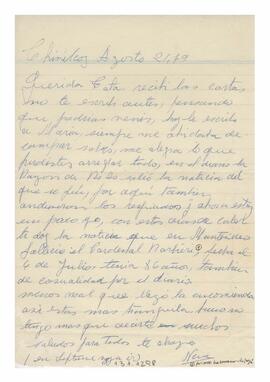 Chivilcoy Agosto 21/79
Querida Tata recibí las cartas
no te escribí antes, pensando
que podrías venir, hoy le escribo
a María, siempre me olvidaba de
comprar sobres, me alegro lo que
pudiste arreglar todo, en el diario la
Razón de Bs As salió la noticia del
que se fue, por aquí también
anduvieron los resfriados y ahora está
un poco feo, con este calor
te doy la noticia que en Montevideo
falleció el Cardenal Barbieri fue el
6 de Julio tenía 86 años, también
de casualidad por el diario
menos mal que llegó la encomienda
así estás mas tranquila, bueno no
tengo mas que decirte muchos
saludos para todos te abraza
Neve